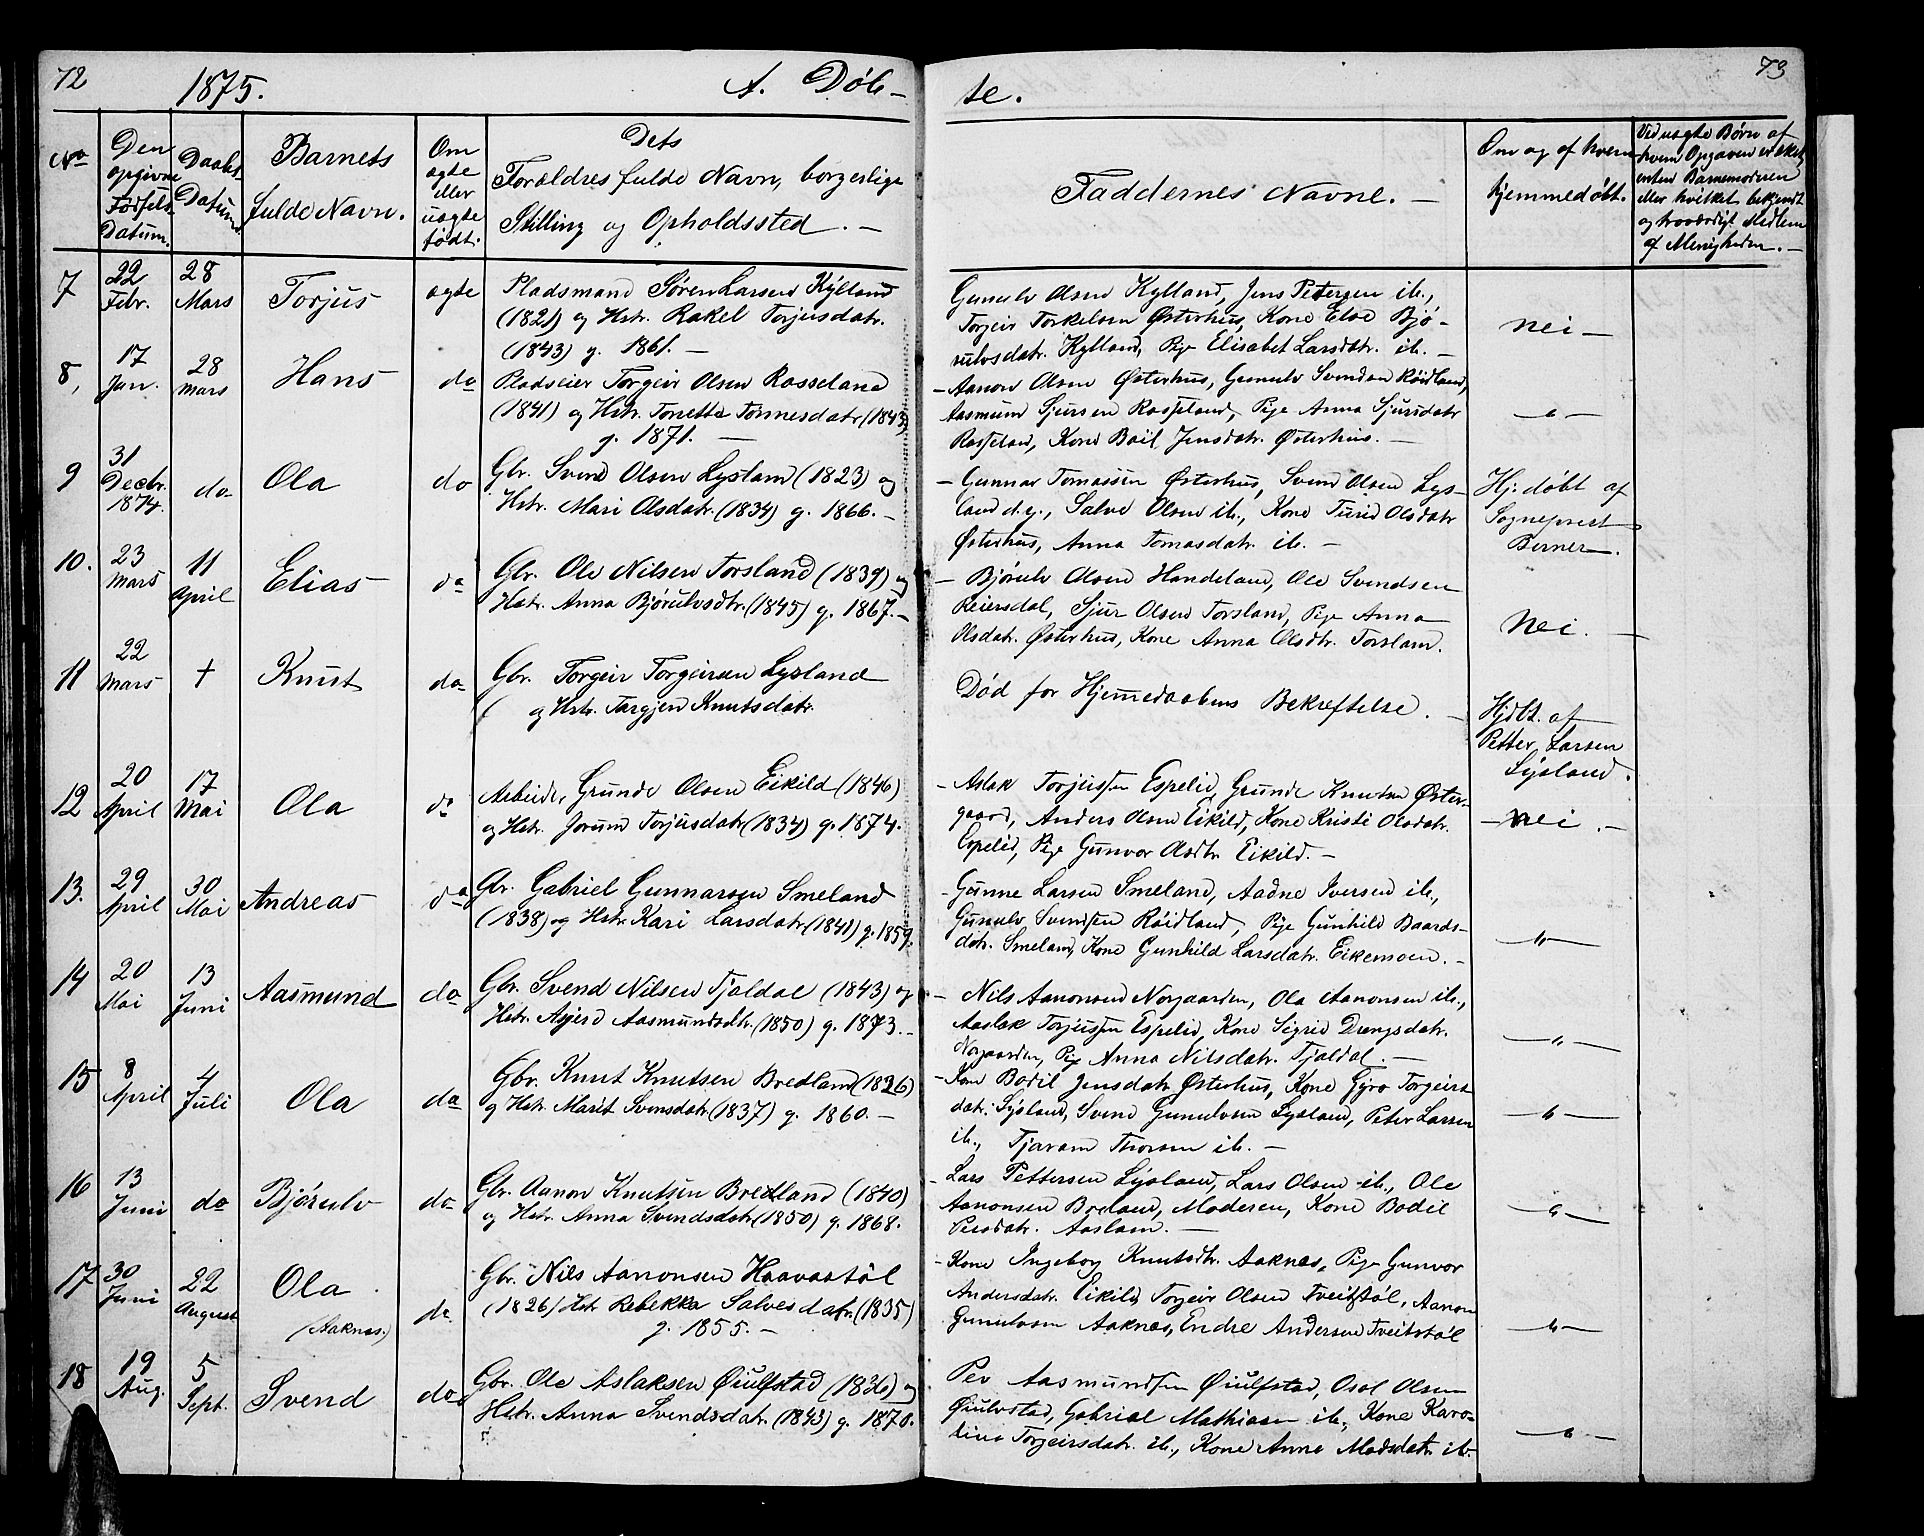 72
1875.
A. Døb-
te.
73
No
Den opgivne Fødsels Datum.
Daabs Datum
Barnets fulde Navn.
Om ægte eller uægte født.
Dets Forældres fulde Navn, borgerlige Stilling og Opholdssted. -
Faddernes Navne. -
Om og af hvem hjemmedøbt.
Ved uægte Børn af hvem Opgaven er skeet, enten Barnemoderen eller hvilket bekjendt og troværdigt Medlem af Menigheden. -
7
22 Febr.
28 Mars
Torjus
ægte
Pladsmand Søren Larsen Kylland
(1821) og Hstr. Rakel Torjusdatr.
(1843) g. 1861. -
Gunulv Olsen Kylland, Jens Petersen ib.,
Torgeir Torkelsen Østerhus, Kone Elve Bjø-
rulvsdatr. Kylland, Pige Elisabet Larsdatr. ib. -
nei -
8,
17 Jan.
28 Mars
Hans
do
Pladseier Torgeir Olsen Rosseland
(1841) og Hstr. Tonette Tonnesdatr (1843)
g. 1871. -
- Aanon Olsen Østerhus, Gunulv Svendsen Røidland,
Aasmund Sjursen Rosseland, Pige Anna Sjursdatr
Rosseland, Kone Boil Jensdatr. Østerhus. -
- " -
9
31 Decbr. 1874.
do
Ola
do
Gbr. Svend Olsen Lysland (1823) og
Hstr. Mari Olsdatr. (1834) g. 1866. -
- Gunnar Tomassen Østerhus, Svend Olsen Lys-
land d.y., Salve Olsen ib., Kone Turid Olsdatr
Østerhus, Anna Tomasdatr. ib. -
Hj. døbt af
Sogneprest
Berner.
10.
23 Mars
11 April
Elias
do
Gbr. Ole Nilsen Torsland (1839) og
Hstr. Anna Bjørulvsdtr. (1845) g. 1867. -
- Bjørulv Olsen Handeland, Ole Svendsen
Reiersdal, Sjur Olsen Torsland, Pige Anna
Olsdatr. Østerhus, Kone Anna Olsdtr. Torsland.
Nei. -
11
22 Mars
+
Knut
do
Gbr. Torgeir Torgeirsen Lysland
( og Hstr. Targjerd Knutsdatr.
Død før Hjemmedaabens Bekræftelse. -
Hjdbt. af
Petter Larsen
Lysland.
12
20 April
17 Mai
Ola
do
Arbeidr. Grunde Olsen Eikild (1846)
og Hstr. Jorunn Torjusdatr (1834) g. 1874.
- Aslak Torjussen Espelid, Grunde Knutsen Øster-
gaard, Anders Olsen Eikild, Kone Kristi Olsdatr.
Espelid, Pige Gunvor Olsdtr. Eikild. -
- nei. -
13.
29 April
30 Mai
Andreas
do
Gbr. Gabriel Gunnarsen Smeland
(1838) og Hstr. Kari Larsdatr. (1841) g. 1859.
- Gunne Larsen Smeland, Aadne Iversen ib.,
Gunulv Svendsen Røidland, Pige Gunhild Baards-
datr. Smeland, Kone Gunhild Larsdatr. Eikemoen. -
- " -
14
20 Mai
13 Juni
Aasmund
do
Gbr. Svend Nilsen Tjaldal (1843) og
Hstr. Asjerd Aasmundsdtr. (1850) g. 1873. -
- Nils Aanonsen Norgaarden, Ola Aanonsen ib.,
Aaslak Torjussen Espelid, Kone Sigrid Drengsdatr.
Norgaarden, Pige Anna Nilsdatr. Tjaldal. -
- " -
15
8 April
4 Juli
Ola
do
Gbr. Knut Knutsen Bredland (1826)
og Hstr. Marit Svensdatr (1837) g. 1860. -
- Kone Bodil Jensdatr. Østerhus, Kone Gyro Torgeirs
datr. Lysland, Svend Gunulvsen Lysland, Peter Larsen
ib., Tjaram Thorsen ib. -
- " -
16
13 Juni
do
Bjørulv
do
Gbr. Aanon Knutsen Bredland (1840)
og Hstr. Anna Svendsdatr. (1850) g. 1868.
- Lars Pettersen Lysland, Lars Olsen ib., Ole
Aanonsen Breland, Moderen, Kone Bodil
Persdatr. Aasland. -
- " -
17
30 Juni
22 August
Ola
(Aaknes.)
do
Gbr. Nils Aanonsen Haavastøl
(1826) Hstr Rebekka Salvesdatr. (1835)
g. 1855. -
- Kone Ingeborg Knutsdtr. Aaknes, Pige Gunvor
Andersdatr. Eikild, Torgeir Olsen Tveitstøl, Aanon
Gunulvsen Aaknes, Endre Andersen Tveitstøl
- " -
18
19 Aug.
5 Sept.
Svend
do
Gbr. Ole Aslaksen Øiulfstad (1836) og
Hstr. Anna Svendsdatr. (1843) g. 1870.
Per Aasmundsen Øiulfstad, Osol Olsen
Øiulvstad, Gabriel Mathiasen ib., Kone Karo-
line Torgeirsdatr. ib., Kone Anne Madsdatr. ib.
- " -